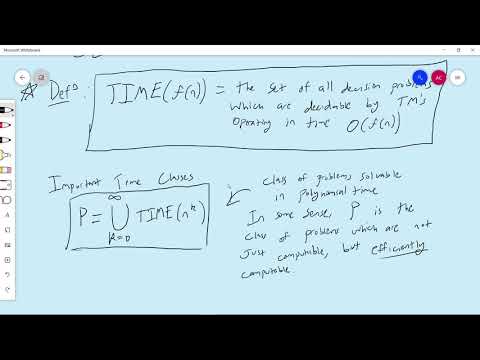 Microsoft Whiteboard
AC
☆ Defⁿ: TIME(f(n)) = the set of all decision problems
which are decidable by TM's
operating in time O(f(n))
Important Time Classes
P = ⋃_{k=0}^{∞} TIME(n^k)
class of problems solvable
in polynomial time
In some sense, P is the
class of problems which are not
just computible, but efficiently
computible